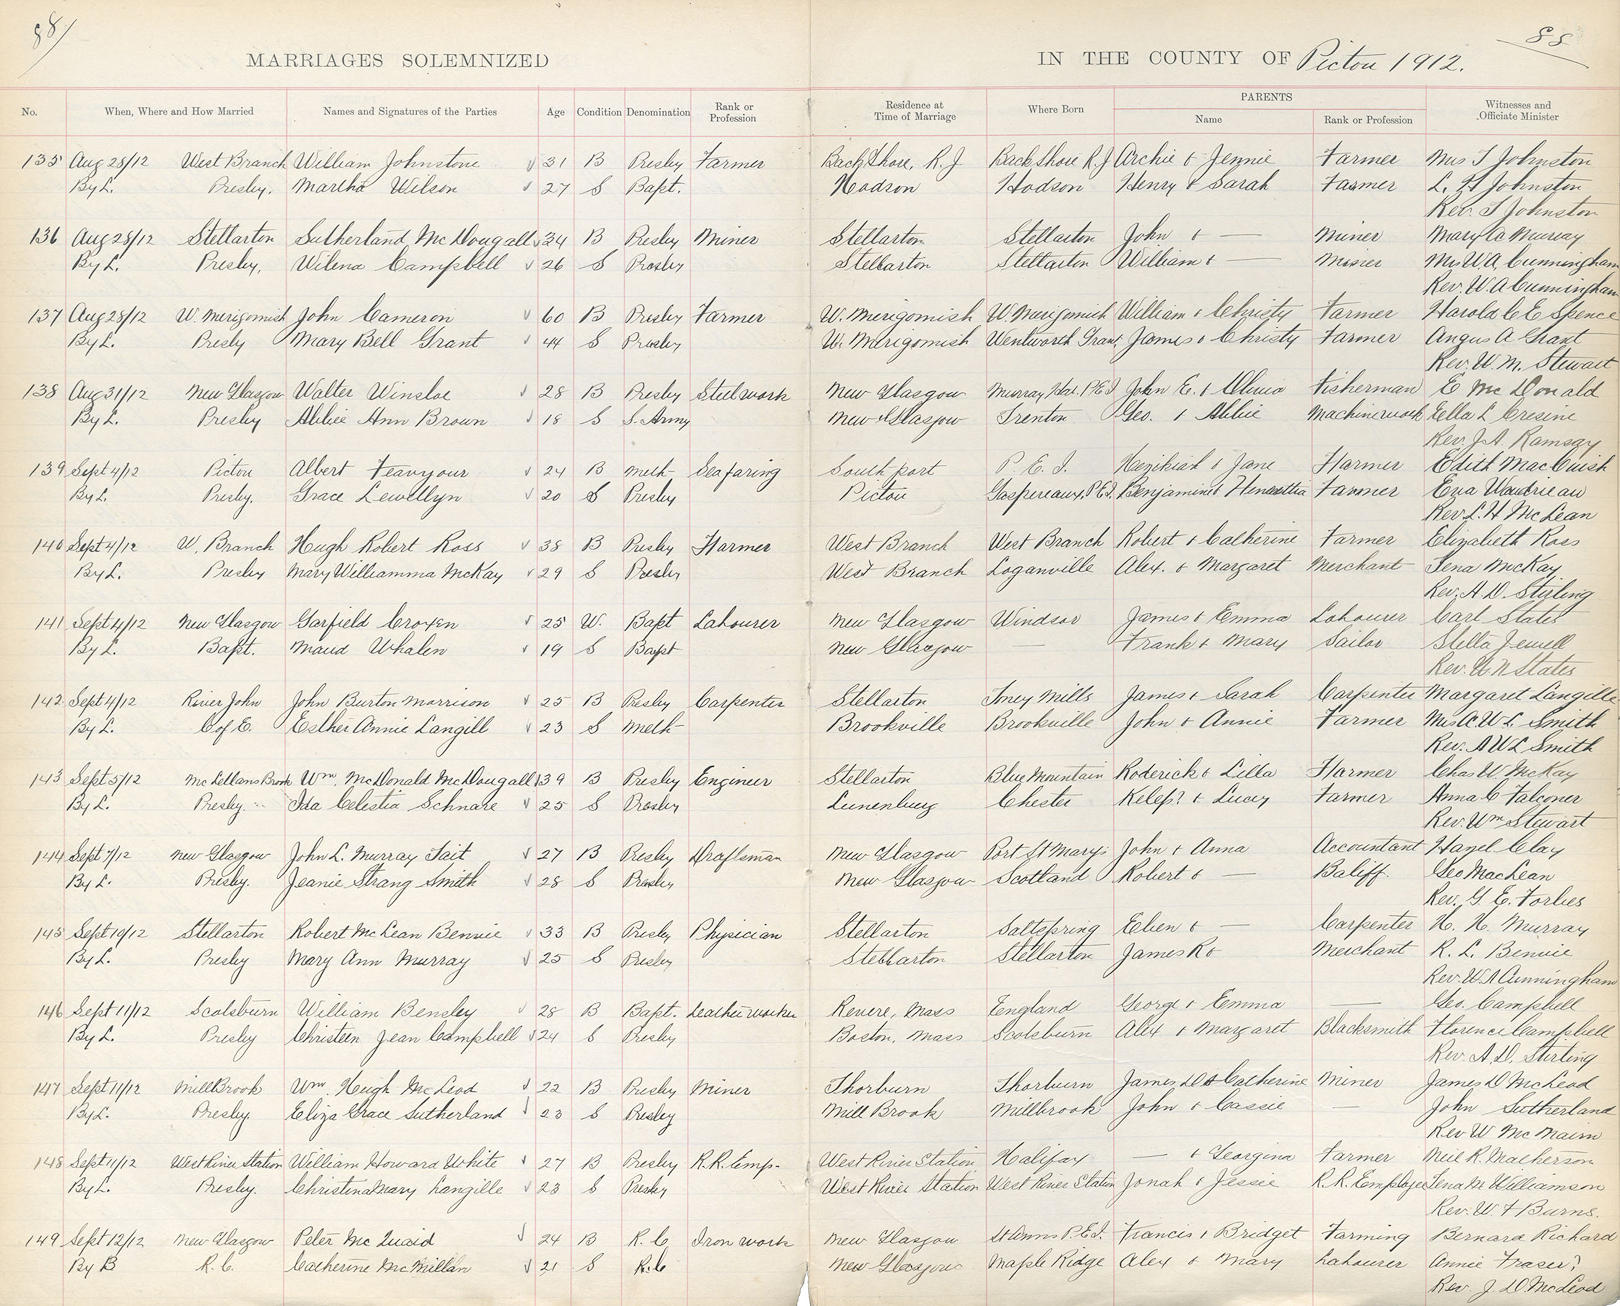 88
88
MARRIAGES SOLEMNIZED IN THE COUNTY OF Pictou 1912.
No. When, Where and How Married Names and Signatures of the Parties Age Condition Denomination Rank or Profession Residence at Time of Marriage Where Born PARENTS Name Rank or Profession Witnesses and Officiate Minister
135 Aug 28/12 West Branch William Johnstone √ 31 B Presby Farmer Back Shore, R.J Back Shore R.J Archie & Jennie Farmer Mrs T Johnston
By L. Presby. Martha Wilson √ 27 S Bapt. Hodson Hodson Henry & Sarah Farmer L. H Johnston
Rev. T Johnston
136 Aug 28/12 Stellarton Sutherland McDougall √ 34 B Presby Miner Stellarton Stellarton John & — Miner Mary A Murray
By L. Presby. Wilena Campbell √ 26 S Presby Stellarton Stellarton William & — Miner Mrs W.A. Cunningham
Rev. W. A Cunningham
137 Aug 28/12 W. Merigomish John Cameron √ 60 B Presby Farmer W. Merigomish W. Merigomish William & Christy Farmer Harold C E Spence
By L. Presby Mary Bell Grant √ 44 S Presby W. Merigomish Wentworth Grant James & Christy Farmer Angus A Grant
Rev. W. M. Stewart
138 Aug 31/12 New Glasgow Walter Winsloe √ 28 B Presby Steelwork New Glasgow Murray Har. P.E.I John E. & Olivia Fisherman E McDonald
By L. Presby Abbie Ann Brown √ 18 S S. Army New Glasgow Trenton Geo. & Abbie Machinework Ella L Cresine
Rev. J. A. Ramsay
139 Sept 4/12 Pictou Albert Feavyour √ 24 B Meth Seafaring Southport P. E. I. Hezikiah & Jane Farmer Edith MacCuish
By L. Presby. Grace Lewellyn √ 20 S Presby Pictou Gaspereaux, P.E.I. Benjamine & Henerettia Farmer Eva
Rev. L. H McLean
140 Sept 4/12 W. Branch Hugh Robert Ross √ 38 B Presby Farmer West Branch West Branch Robert & Catherine Farmer Elizabeth Ross
By L. Presby Mary Williamma McKay √ 29 S Presby West Branch Loganville Alex. & Margaret Merchant Tena McKay
Rev. A. D. Stirling
141 Sept 4/12 New Glasgow Garfield Croxen √ 25 W. Bapt Labourer New Glasgow Windsor James & Emma Labourer Carl States
By L. Bapt. Maud Whalen √ 19 S Bapt New Glasgow — Frank & Mary Sailor Stella Jewell
Rev. W N States
142 Sept 4/12 River John John Burton Morrison √ 25 B Presby Carpenter Stellarton Toney Mills James & Sarah Carpenter Margaret Langille
By L. C of E. Esther Annie Langill √ 23 S Meth Brookville Brookville John & Annie Farmer Mrs A. W L Smith
Rev. A W L Smith
143 Sept 5/12 McLellans Brook Wm. McDonald McDougall √ 39 B Presby Engineer Stellarton Blue Mountain Roderick & Lilla Farmer Chas W. McKay
By L. Presby. Ida Celestia Schnare √ 25 S Presby Lunenburg Chester Kelep? & Lucy Farmer Anna C Falconer
Rev. Wm Stewart
144 Sept 7/12 New Glasgow John L. Murray Tait √ 27 B Presby Draftsman New Glasgow Port St Marys John & Anna Accountant Hazel Clay
By L. Presby. Jeanie Strang Smith √ 28 S Presby New Glasgow Scotland Robert & — Baliff. Geo MacLean
Rev. G. E. Forbes
145 Sept 10/12 Stellarton Robert McLean Bennie √ 33 B Presby Physician Stellarton Saltspring Eben & — Carpenter H. H. Murray
By L. Presby Mary Ann Murray √ 25 S Presby Stellarton Stellarton James R & Merchant R. L. Bennie
Rev. W. A Cunningham
146 Sept 11/12 Scotsburn William Bensley √ 28 B Bapt. Leather worker Revere, Mass England George & Emma — Geo. Campbell
By L. Presby Christeen Jean Campbell √ 24 S Presby Boston, Mass Scotsburn Alex & Margaret Blacksmith Florence Campbell
Rev. A. D. Stirling
147 Sept 11/12 MillBrook Wm. Hugh McLeod √ 22 B Presby Miner Thorburn Thorburn James D & Catherine Miner James D McLeod
By L. Presby. Eliza Grace Sutherland √ 23 S Presby Mill Brook Millbrook John & Cassie — John Sutherland
Rev W McNairn
148 Sept 11/12 West River Station William Howard White √ 27 B Presby R.R. Emp. West River Station Halifax — & Georgina Farmer Neil R. Macherson
By L. Presby. Christina Mary Langille √ 23 S Presby West River Station West River Station Jonah & Jessie R.R. Employee Tena M Williamson
Rev. W. F Burns.
149 Sept 12/12 New Glasgow Peter McQuaid √ 24 B R. C Iron work New Glasgow St Anns P.E.I. Francis & Bridget Farming Bernard Richard
By B R. C. Catherine McMillan √ 21 S R.C New Glasgow Maple Ridge Alex & Mary Labourer Annie Fraser?
Rev. J. D. McLeod